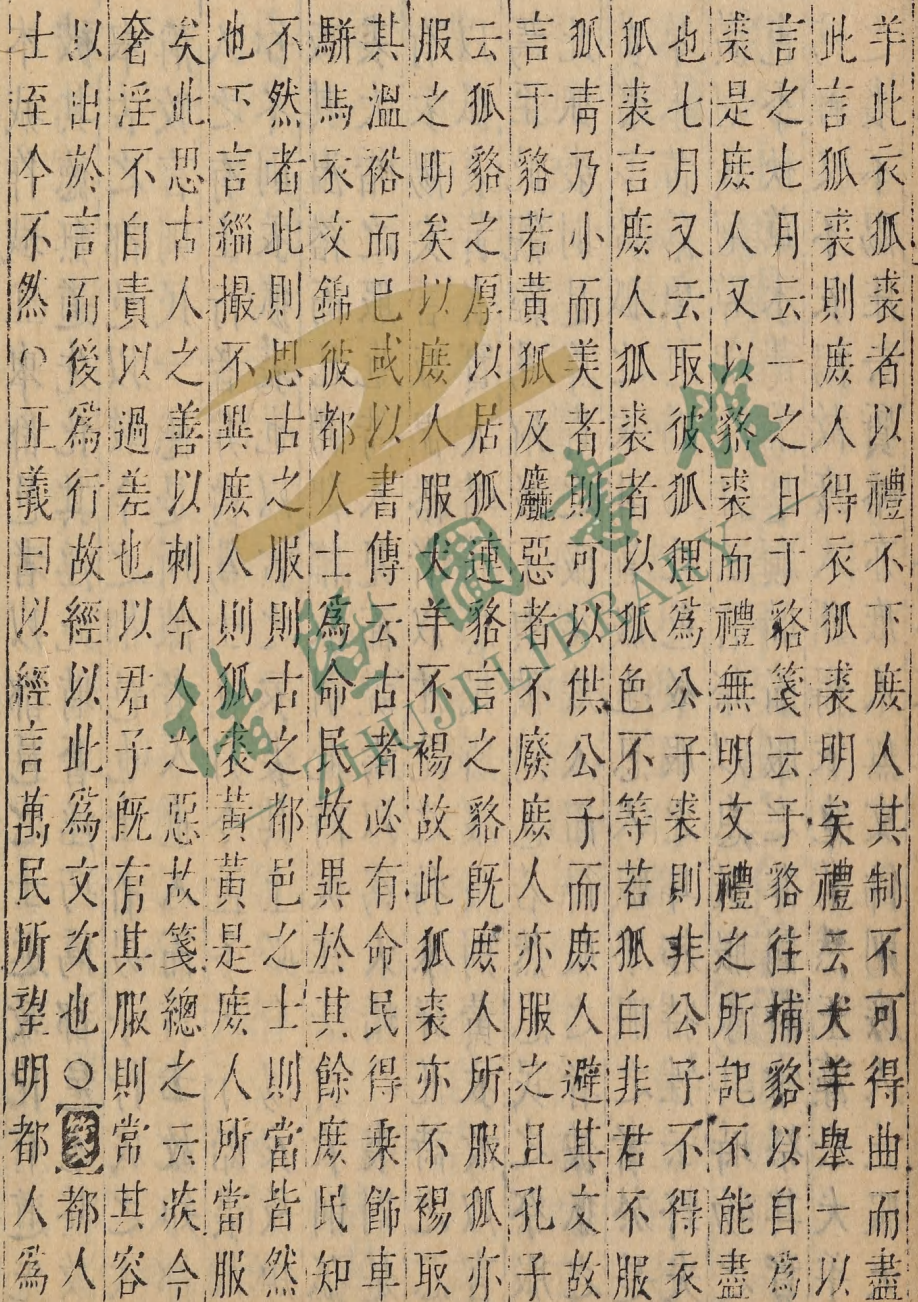 羊此衣狐裘者以禮不下庶人其制不可得曲而盡
此言狐裘則庶人得衣狐裘明矣禮云犬羊舉一以
言之七月云一之日于貉箋云于貉往捕貉以自為
裘是庶人又以貉裘而禮無明文禮之所記不能盡
也七月又云取彼狐狸為公子裘則非公子不得衣
狐裘言庶人狐裘者以狐色不等若狐白非君不服
狐青乃小而美者則可以供公子而庶人避其文故
言于貉若黃狐及麤惡者不廢庶人亦服之且孔子
云狐貉之厚以居狐連貉言之貉既庶人所服狐亦
服之明矣以庶人服犬羊不裼故此狐裘亦不裼取
其溫裕而已或以書傳云古者必有命民得乗飾車
駢馬衣文錦彼都人士為命民故異於其餘庶民知
不然者此則思古之服則古之都邑之士則當皆然
也下言緇撮不異庶人則狐裘黃黃是庶人所當服
矣此思古人之善以刺今人之惡故箋總之云疾今
奢淫不自責以過差也以君子既有其服則常其容
以出於言而後為行故經以此為文次也○箋都人
士至今不然○正義曰以經言萬民所望明都人為
諸暨圖書館
ZHUJI LIBRARY